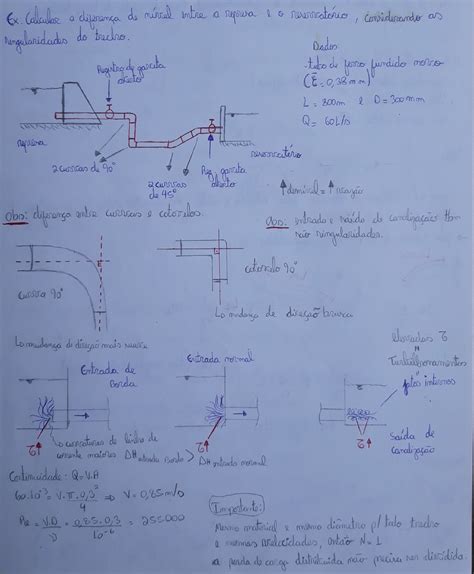 Ex. Calcular a diferença de nível entre a represa e o reservatório, considerando as
singularidades do trecho.
Dados
tubo de ferro fundido novo
(Ē=0,38mm)
L = 800m e D = 300mm
Q = 60L/s
Registro de gaveta
aberto
represa
2 curvas de 90°
2 curvas de 45°
Reg. gaveta
aberto
reservatório
↑ desnível = ↑ vazão
Obs: diferença entre curvas e cotovelos.
Obs: entrada e saída de canalização tem
são singularidades.
curva 90°
cotovelo 90°
↳ mudança de direção brusca
↳ mudança de direção mais suave
Entrada de
Borda
Entrada normal
Elevados τ
Turbilhonamentos
jatos internos
τ↑
τ↑
τ↑
Saída de
canalização
↳ curvaturas da linha de
corrente maiores ΔH entrada Borda > ΔH entrada normal
Continuidade - Q=V.A
60.10⁻³ = V.π.0,3² / 4 ⇒ V = 0,85m/s
Re = V.D / ν = 0,85.0,3 / 10⁻⁶ = 255000
Importante:
Mesmo material e mesmo diâmetro p/ todo trecho
e mesmas velocidades, então N=1
a perda de carga distribuída não precisa ser dividida